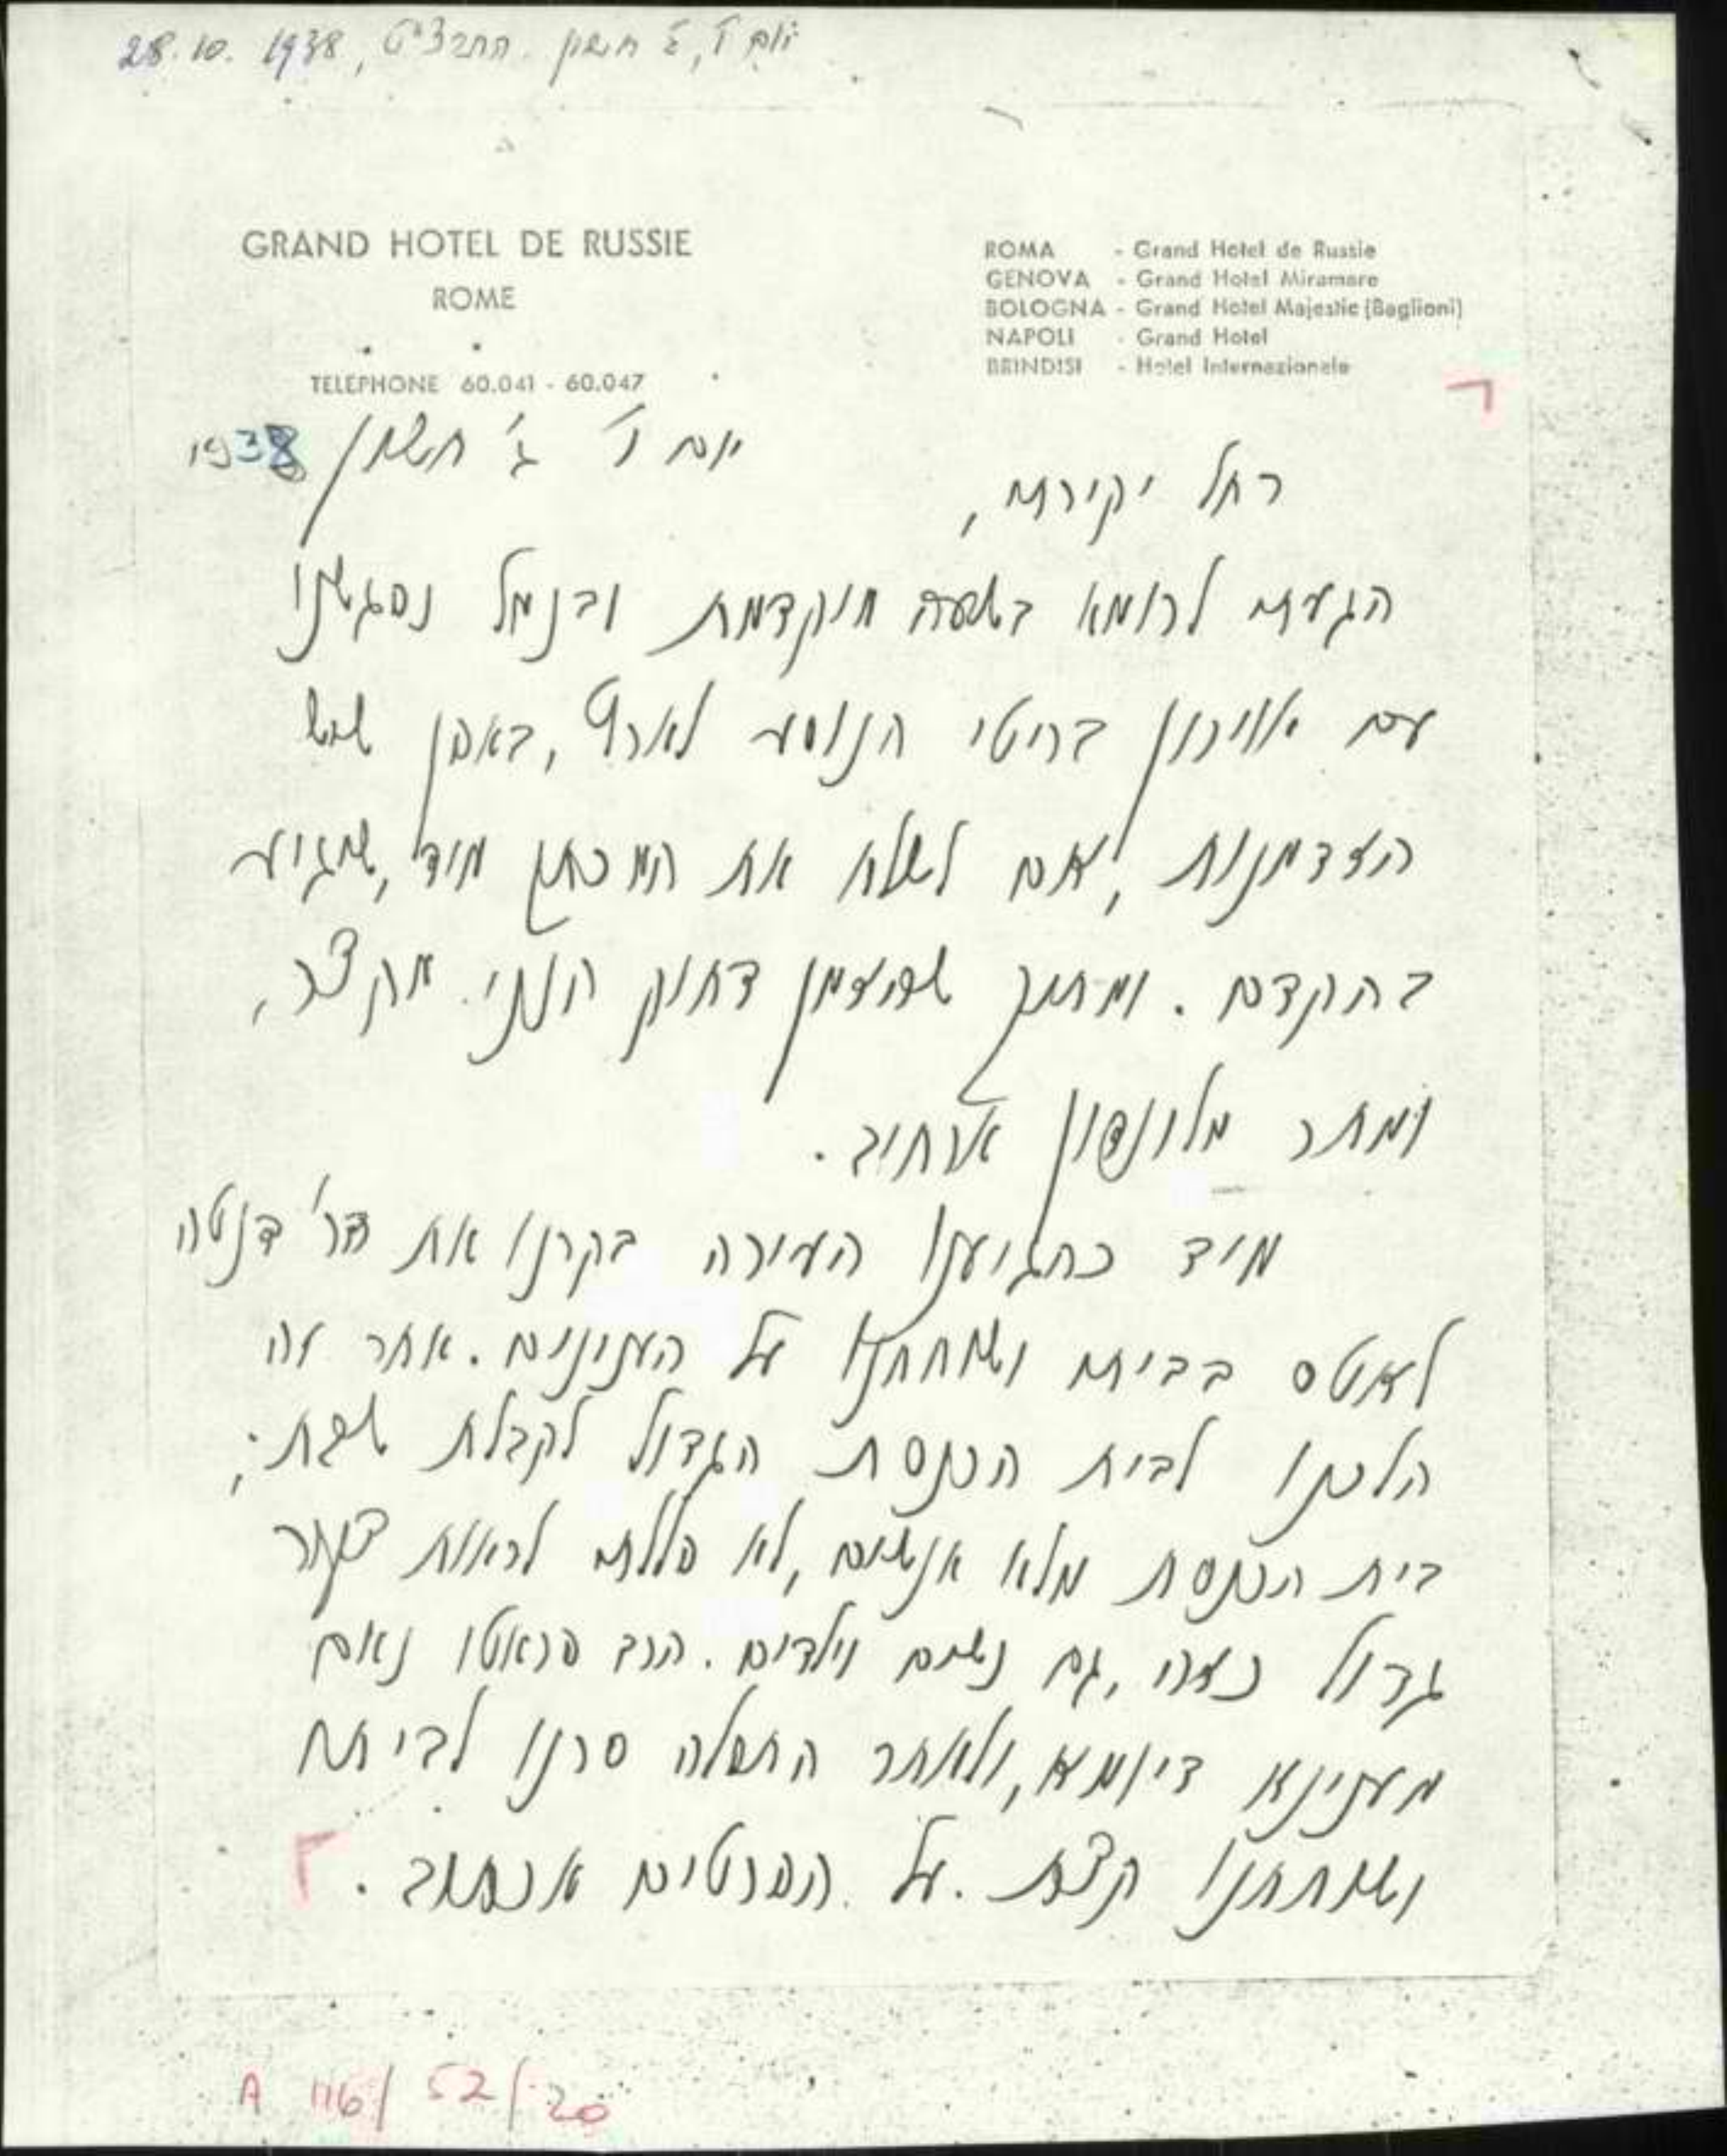 28.10.1938, יום ו', ג' חשון. התרצ"ט
GRAND HOTEL DE RUSSIE
ROME
TELEPHONE 60.041 - 60.047
ROMA - Grand Hotel de Russie
GENOVA - Grand Hotel Miramare
BOLOGNA - Grand Hotel Majestic (Baglioni)
NAPOLI - Grand Hotel
BRINDISI - Hotel Internazionale
יום ו' ג' חשון 1938
רחל יקירתי,
הגעתי לרומא בשעה מוקדמת ובנמל נפגשנו
עם אוירון בריטי הנוסע לארץ, באפן שיש
הזדמנות, אם לשלח את המכתב מיד, שיגיע
בהקדם. ומתוך שהזמן דחוק הנני מקצר,
ומחר מלונדון ארחיב.
מיד כהגיענו העירה בקרנו את הד"ר דנטה
לאטס בביתו ושוחחנו על הענינים. אחר זה
הלכנו לבית הכנסת הגדול לקבלת שבת;
בית הכנסת מלא אנשים, לא פללתי לראות צבור
גדול כזה, גם נשים וילדים. הרב פראטו נאם
מענינא דיומא, ולאחר התפלה סרנו לביתו
ושוחחנו קצת. על הפרטים אכתוב.
A 116/52/20